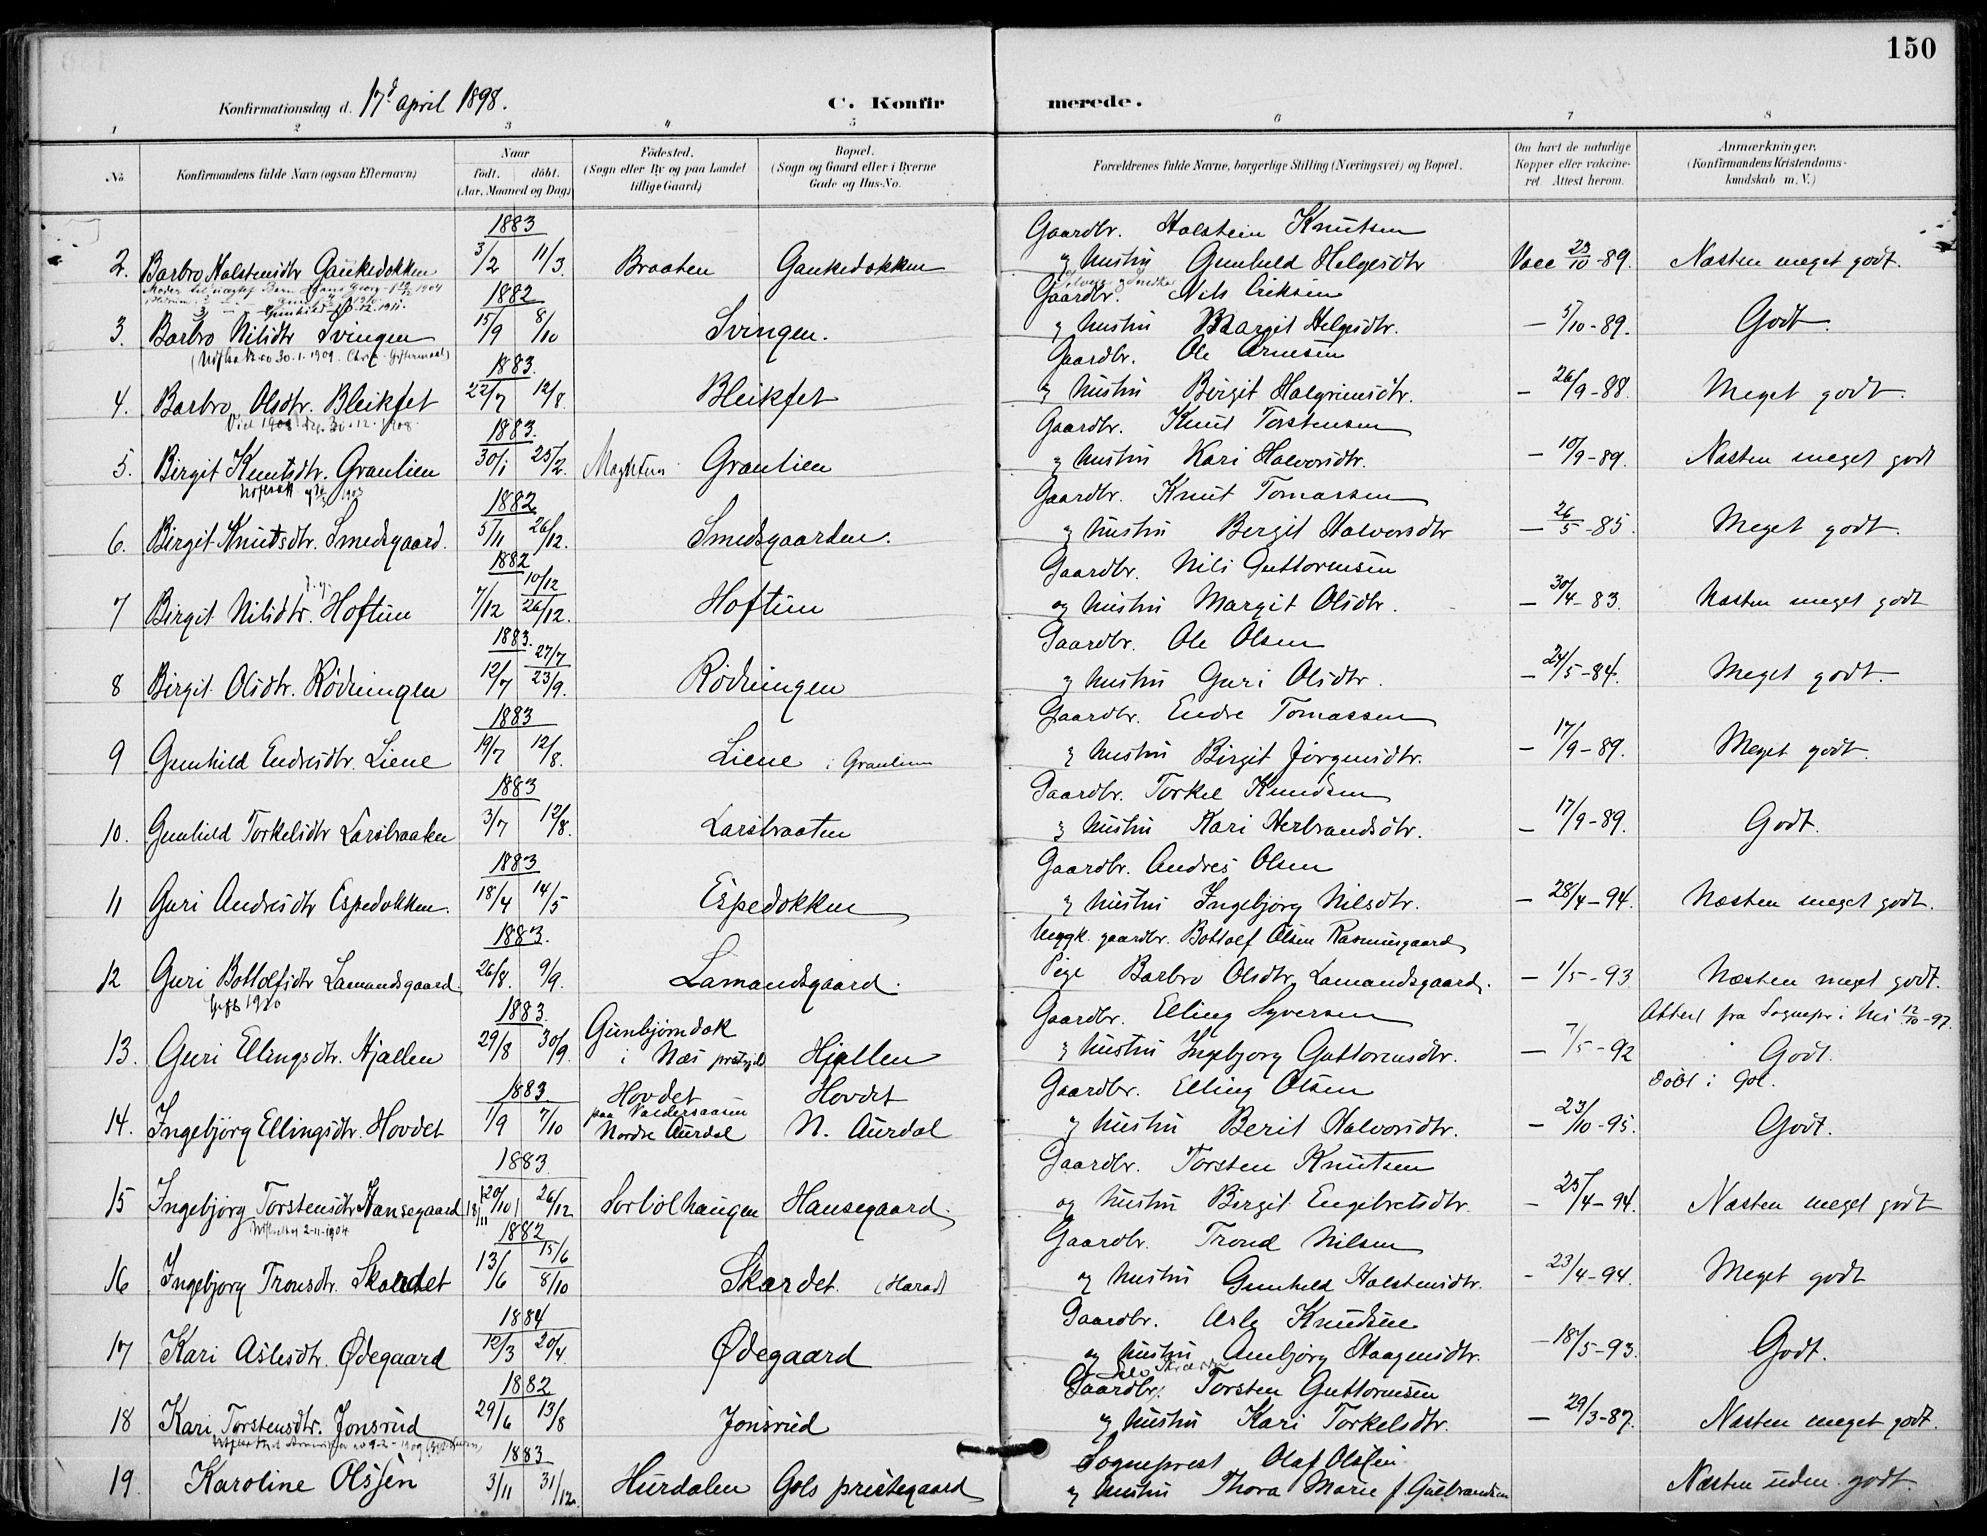 150
Konfirmationsdag d. 17d april 1898.
C. Konfirmerede.
1 2 3 4 5 6 7 8
No.
Konfirmandens fulde Navn (ogsaa Efternavn)
Naar
født. døbt.
(Aar, Maaned og Dag)
Fødested.
(Sogn eller By og paa Landet
tillige Gaard)
Bopæl.
(Sogn og Gaard eller i Byerne
Gade og Hus-No.
Forældrenes fulde Navne, borgerlige Stilling (Næringsvei) og Bopæl.
Om havt de naturlige
Kopper eller vakcine-
ret. Attest herom.
Anmærkninger.
(Konfirmandens Kristendoms-
kundskab m. V.)
1883 Gaardbr. Halstein Knutsen
2. Barbro Halstensdtr Gaukedokken 3/2 11/3. Braaten Gaukedokken og hustru Gunhild Helgesdtr Vacc 23/10-89. Næsten meget godt.
1882 Gaardbr. Nils Eriksen
3. Barbro Nilsdtr Svingen 15/9 8/10 Svingen. og hustru Margit Helgesdtr. — 5/10-89. Godt.
1883. Gaardbr. Ole Arnesen
4. Barbro Olsdtr. Bleikfet 22/7 12/8. Bleikfet og hustru Birgit Halgrimsdtr. — 26/9-88. Meget godt.
1883. Gaardbr. Knut Torstensen
5. Birgit Knutsdtr. Graulien 30/1 25/2. Graulien og hustru Kari Halvorsdtr. — 10/9-89. Næsten meget godt
1882 Gaardbr. Knut Tomassen
6. Birgit Knutsdtr. Smedsgaard. 5/11 26/12. Smedsgaarden. og hustru Bergit Halvorsdtr — 26/5-85. Meget godt.
1882 Gaardbr. Nils Guttormsen
7 Birgit Nilsdtr. Hoftun 7/12 10/12 26/12. Hoftun og hustru Margit Olsdtr. — 30/4-83. Næsten meget godt
1883. Gaardbr. Ole Olsen
8 Birgit Olsdtr. Rødningen 12/7 27/7 23/9. Rødningen og hustru Guri Olsdtr. — 24/5-84. Meget godt.
1883 Gaardbr. Endre Tomassen
9 Gunhild Endresdtr. Liene 19/7 12/8. Liene i Graulien og hustru Birgit Jørgensdtr. — 17/9-89. Meget godt.
1883 Gaardbr. Torkel Knudsen
10. Gunhild Torkelsdtr Larsbraaten 3/7 12/8. Larsbraaten og hustru Kari Herbrandsdtr. — 17/9-89. Godt.
1883 Gaardbr. Andres Olsen
11 Guri Andresdtr Espedokken. 18/4 14/5 Espedokken og hustru Ingebjørg Nilsdtr. — 28/4-94. Næsten meget godt.
1883. Ungk. gaardbr. Bottolf Olsen Rasmusgaard
12 Guri Bottolfsdtr Lamandsgaard 26/8. 9/9. Lamandsgaard. Pige Barbro Olsdtr. Lamandsgaard. — 1/5-93 Næsten meget godt.
1883. Gaardbr. Elling Syversen Attest fra Sognepr i Nes 12/10-97.
13. Guri Ellingsdtr. Hjallen 29/8 30/9. Gunbjørndok i Næs Hjallen og hustru Ingebjørg Guttormsdtr. — 7/5-92 Godt.
1883. Hovdet Hovdet Gaardbr. Elling Olsen Døbt i Gol.
14. Ingebjørg Ellingsdtr. Hovdet 1/9 7/10 paa Valdersaasen Nordre Aurdal N. Aurdal og hustru Berit Halvorsdtr. — 23/10-95. Godt.
1883 Gaardbr. Torsten Knutsen
15 Ingebjørg Torstensdtr Hansegaard 20/10 26/12 Sorbølhaugen Hansegaard. og hustru Birgit Engebretsdtr. — 25/4-94. Næsten meget godt
1882 Gaardbr. Trond Nilsen
16 Ingebjørg Tronsdtr. Skardet 13/6 15/6 8/10 Skardet. og hustru Gunhild Halstensdtr. - 23/4-94. Meget godt
1884 Gaardbr. Asle Knudsen
17 Kari Aslesdtr. Ødegaard 12/3 20/4. Ødegaard og hustru Anbjørg Haagensdtr. — 18/5-93. Godt.
1882 Gaardbr. Torsten Guttormsen
18 Kari Torstensdtr. Jonsrud 29/6 13/8 Jonsrud og hustru Kari Torkelsdtr. — 29/3-87. Næsten meget godt.
1883 Sogneprest Olaf Olssen
19. Karoline Olssen 3/11 31/12. Hurdalen Gols prestegaard og hustru Thora Marie f. Gulbrandsen Næsten uden godt.